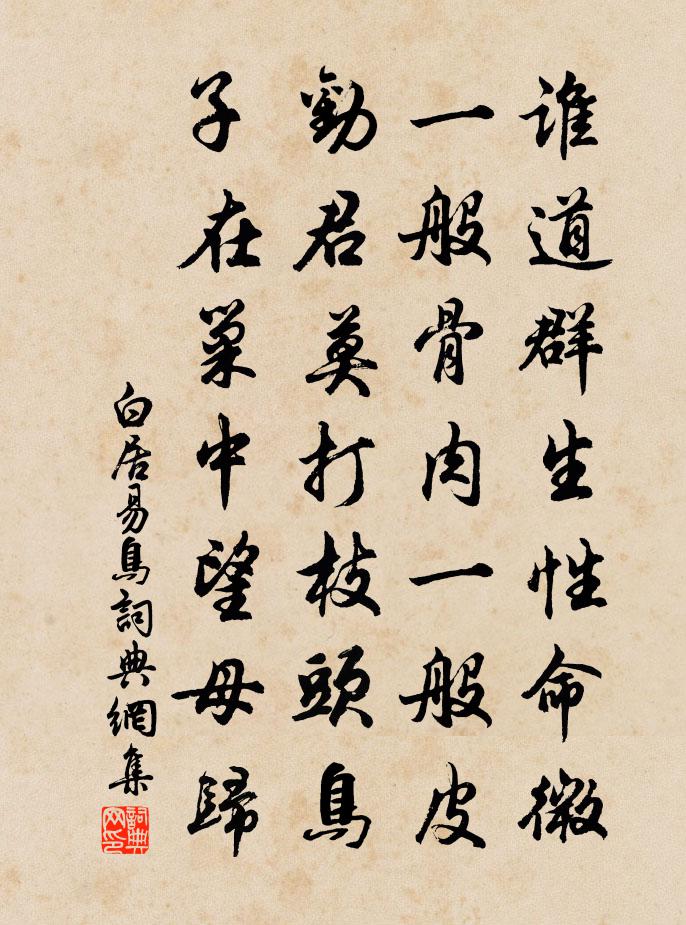 谁道群生性命微
一般骨肉一般皮
勸君莫打枝頭鳥
子在巢中望母歸
白居易鳥詞典網集
詞典網印